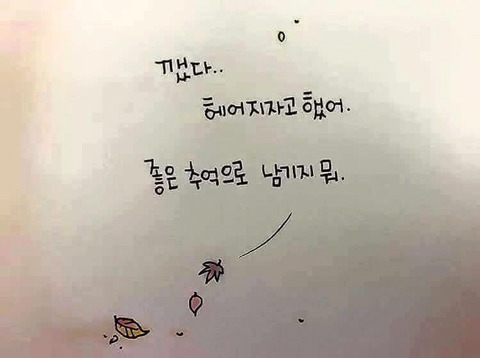 깼다..
헤어지자고 했어.
좋은 추억으로 남기지 뭐.